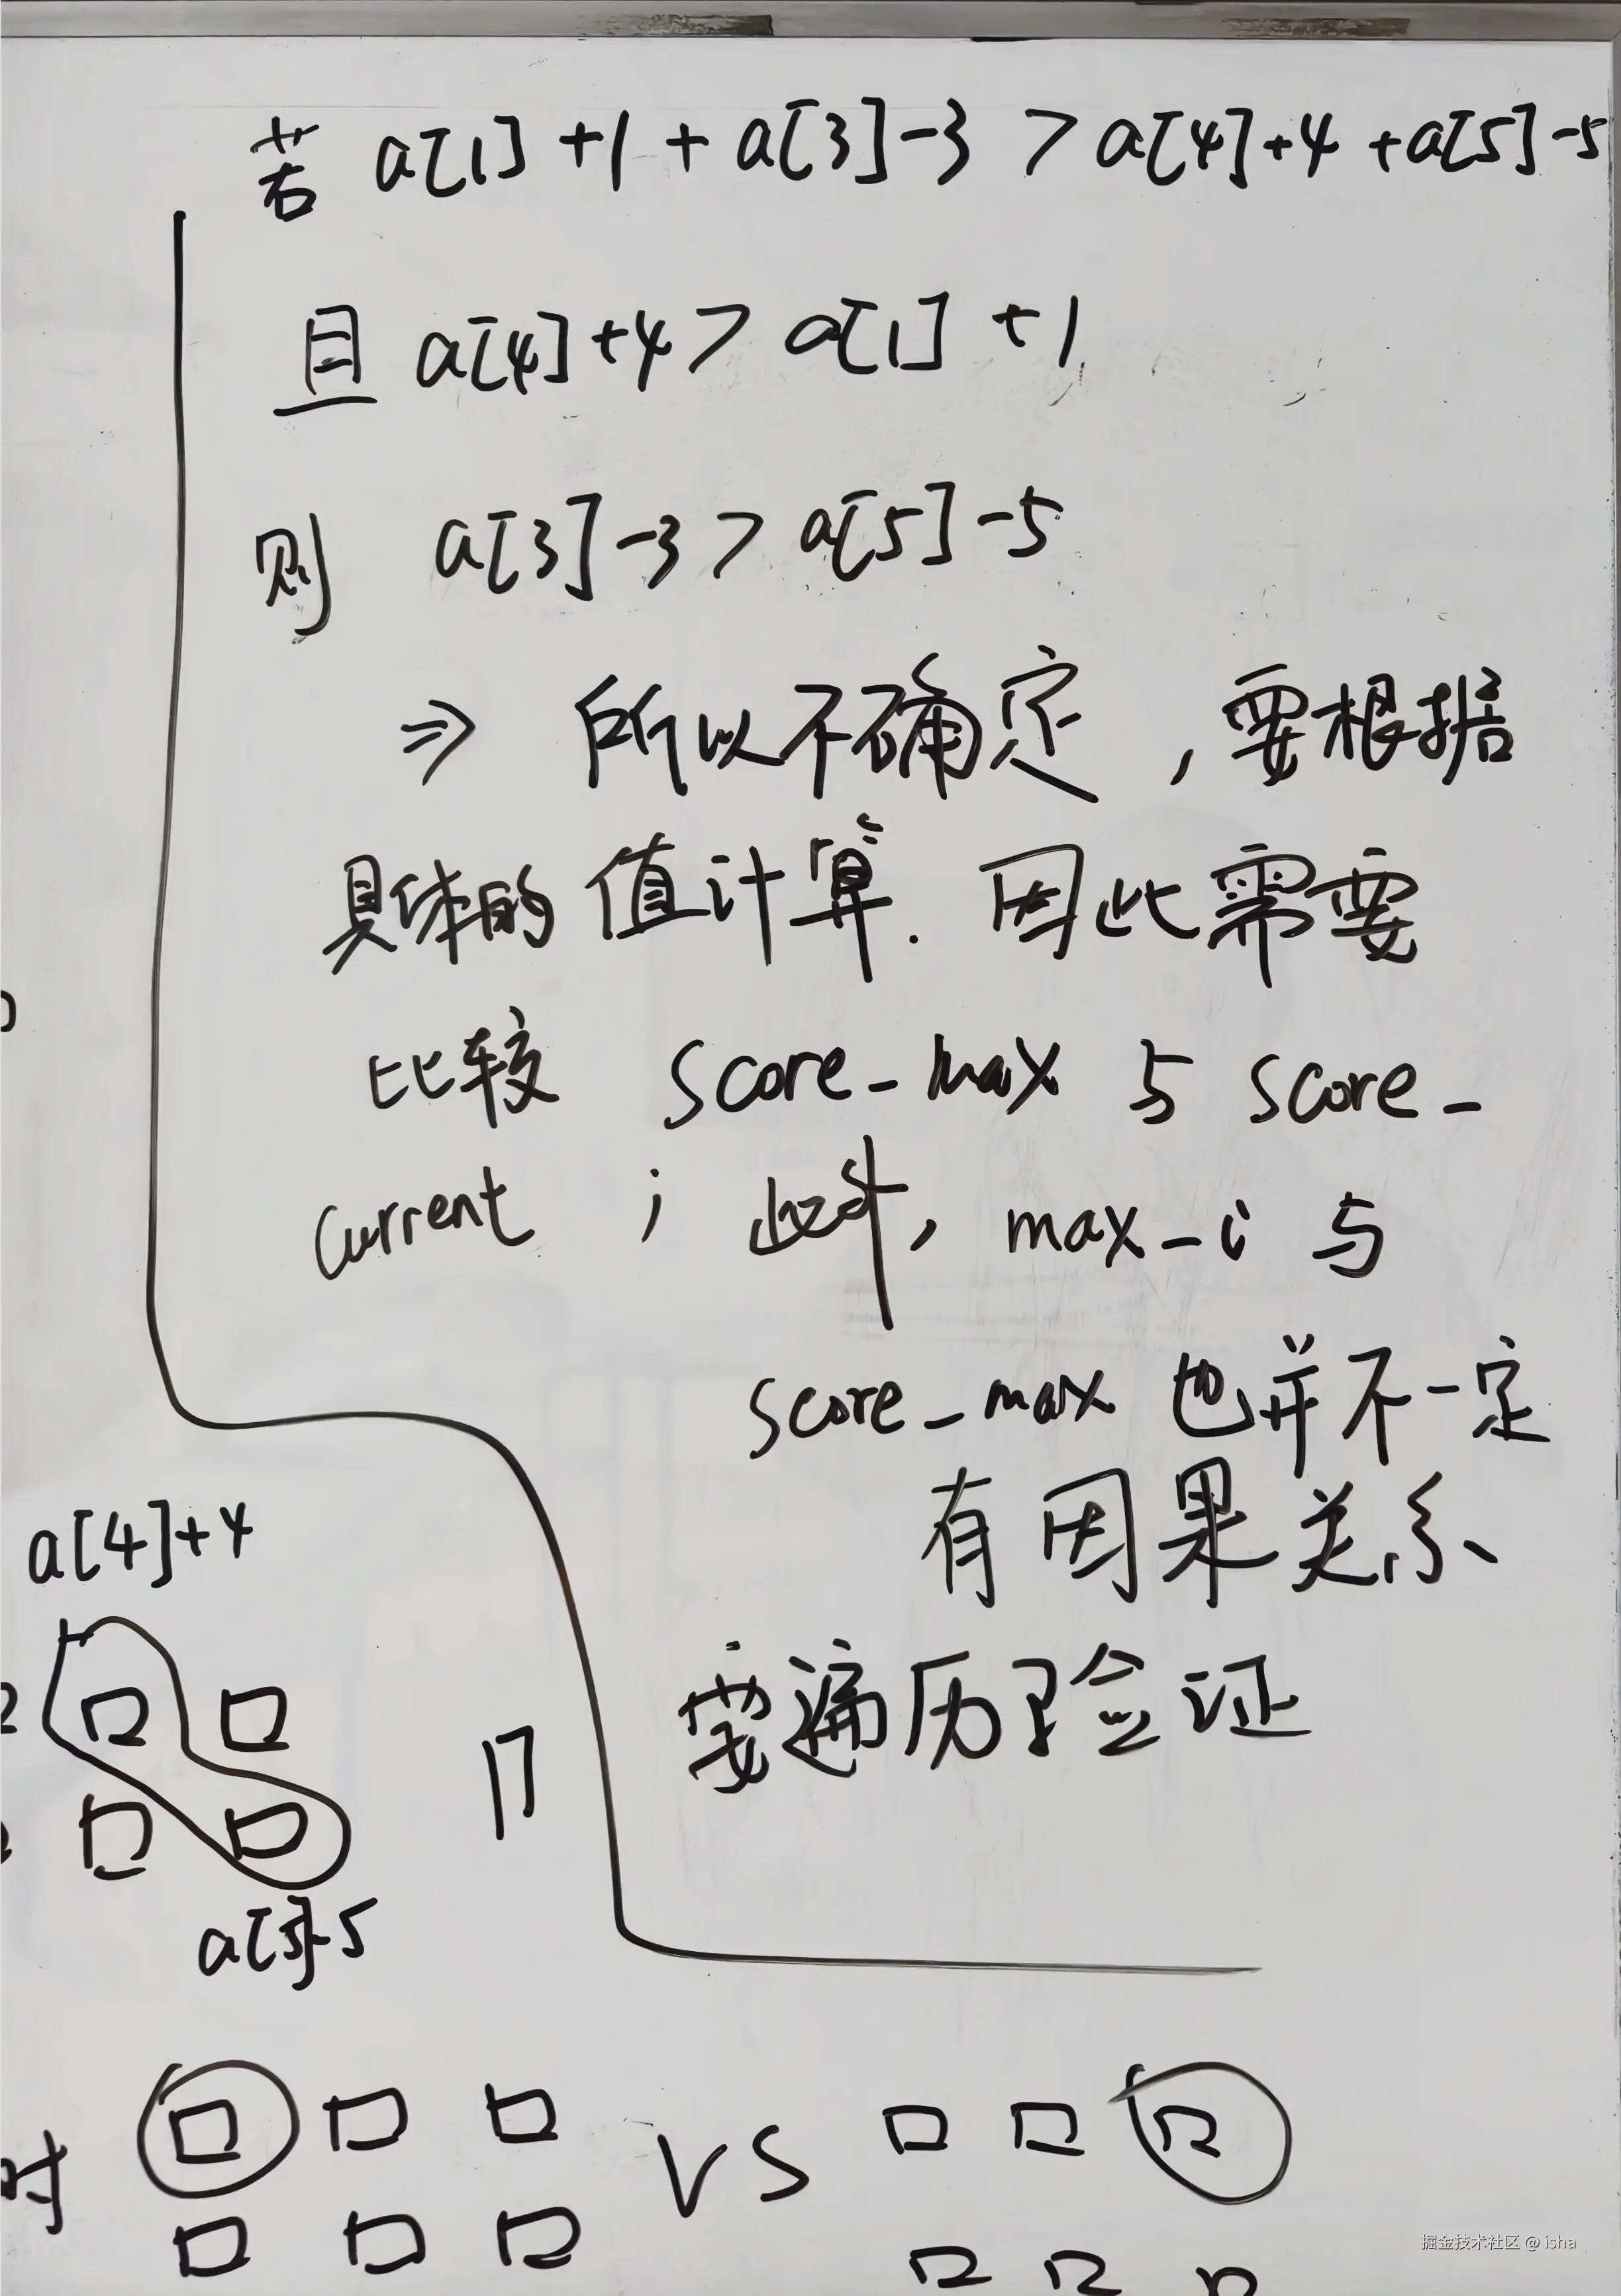 若 a[1]+1+a[3]-3 > a[4]+4+a[5]-5
且 a[4]+4 > a[1]+1
则 a[3]-3 > a[5]-5
⇒ 所以不确定，要根据
具体的值计算. 因此需要
比较 score_max 与 score_
current ; 此外, max_i 与
score_max 也并不一定
有因果关系、
要遍历验证
a[4]+4
a[5]-5
时
VS
掘金技术社区 @ isha